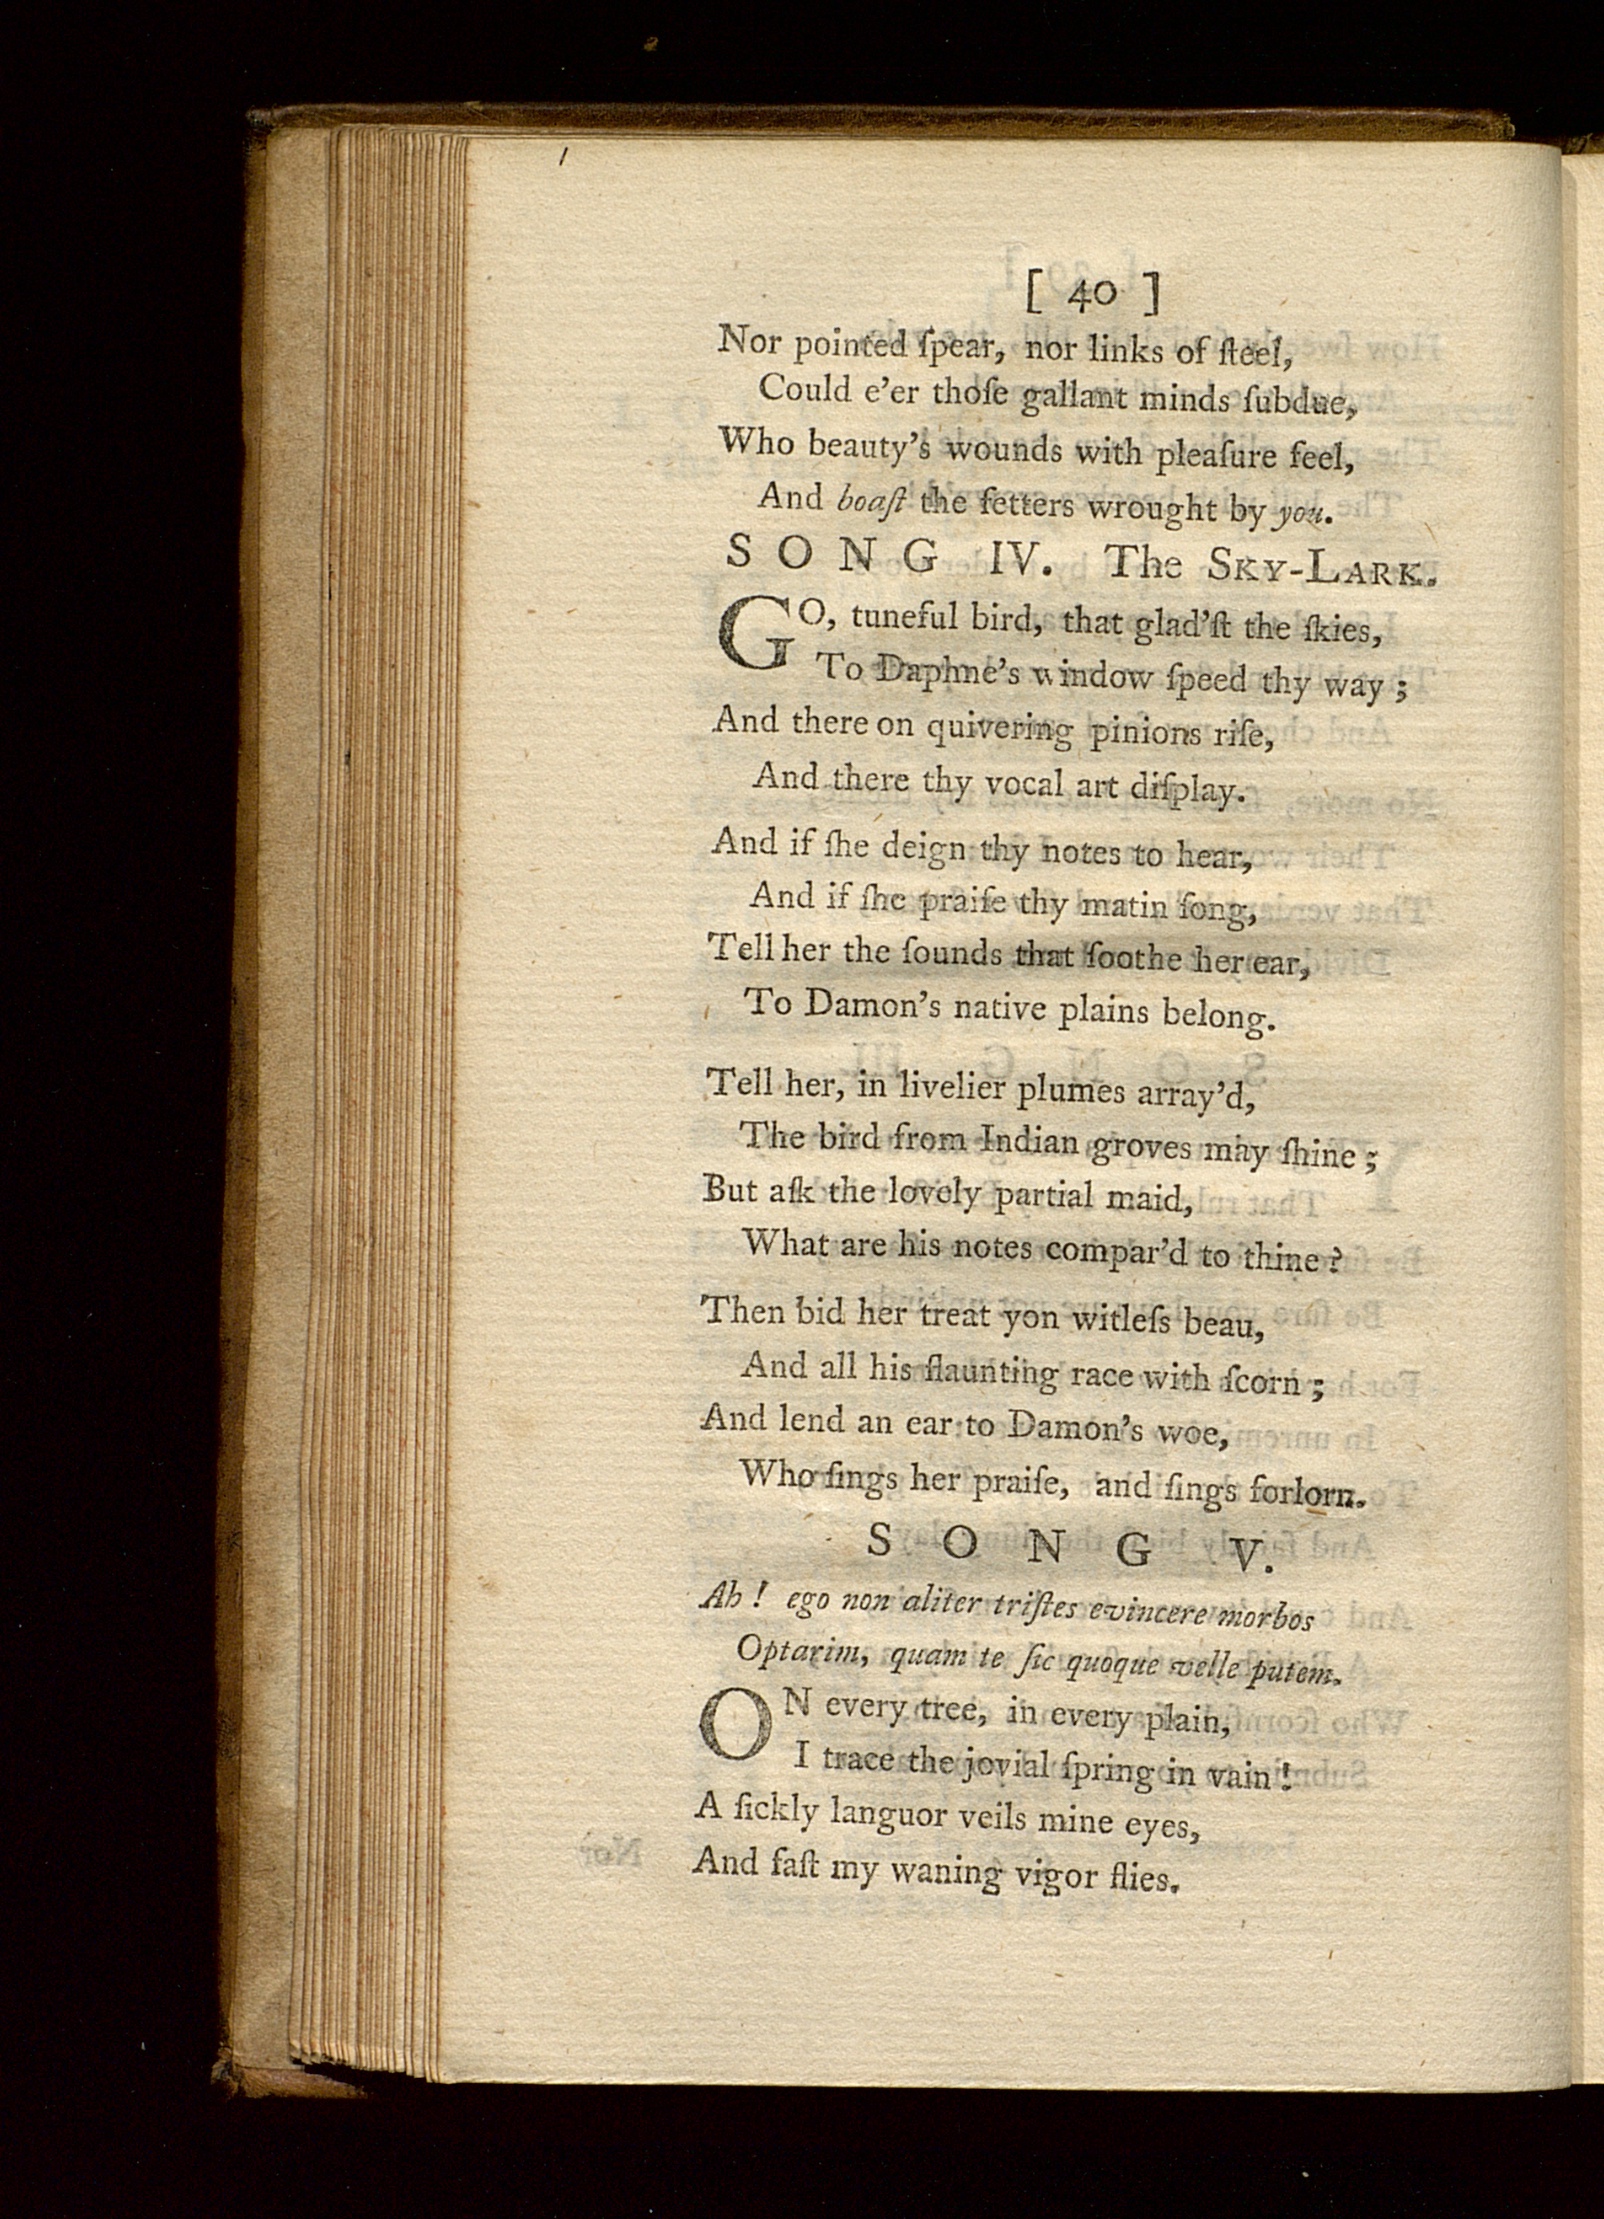 [ 40 ]
Nor pointed ſpear, nor links of ſteel,
Could e'er thoſe gallant minds ſubdue,
Who beauty's wounds with pleaſure feel,
And boaſt the fetters wrought by you.
SONG IV. The SKY-LARK.
GO, tuneful bird, that glad'ſt the ſkies,
To Daphne's window ſpeed thy way ;
And there on quivering pinions riſe,
And there thy vocal art diſplay.
And if ſhe deign thy notes to hear,
And if ſhe praiſe thy matin ſong,
Tell her the ſounds that ſoothe her ear,
To Damon's native plains belong.
Tell her, in livelier plumes array'd,
The bird from Indian groves may ſhine ;
But aſk the lovely partial maid,
What are his notes compar'd to thine ?
Then bid her treat yon witleſs beau,
And all his flaunting race with ſcorn ;
And lend an ear to Damon's woe,
Who ſings her praiſe, and ſings forlorn.
SONG V.
Ah ! ego non aliter triſtes evincere morbos
Optarim, quam te ſic quoque velle putem.
ON every tree, in every plain,
I trace the jovial ſpring in vain !
A ſickly languor veils mine eyes,
And faſt my waning vigor flies.